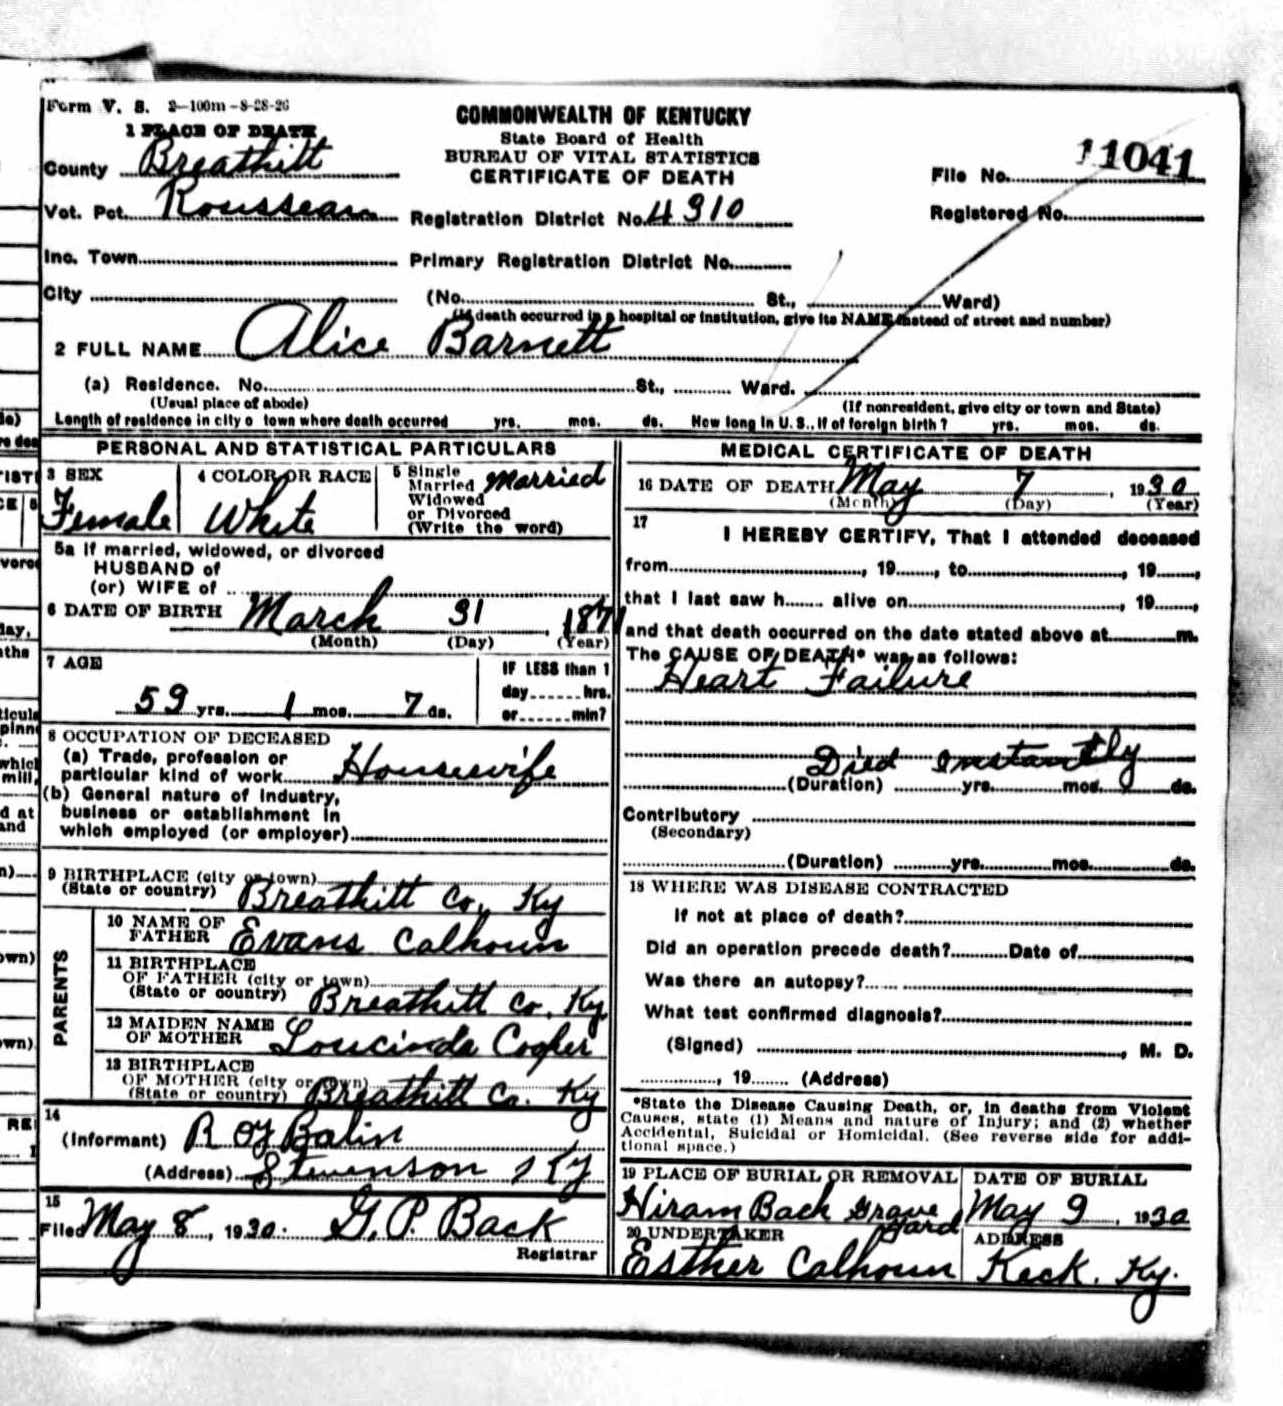 Form V. S. 2-100m-8-28-26
COMMONWEALTH OF KENTUCKY
State Board of Health
BUREAU OF VITAL STATISTICS
CERTIFICATE OF DEATH
1 PLACE OF DEATH
County Breathitt
File No. 11041
Vot. Pct. Rousseau
Registration District No. 4310
Registered No.
Inc. Town
Primary Registration District No.
City (No. St., Ward)
(If death occurred in a hospital or institution, give its NAME instead of street and number)
2 FULL NAME Alice Barnett
(a) Residence. No. St., Ward.
(Usual place of abode) (If nonresident, give city or town and State)
Length of residence in city o town where death occurred yrs. mos. ds. How long in U. S., if of foreign birth? yrs. mos. ds.
PERSONAL AND STATISTICAL PARTICULARS
3 SEX
Female
4 COLOR OR RACE
White
5 Single
Married
Widowed
or Divorced
(Write the word)
Married
5a If married, widowed, or divorced
HUSBAND of
(or) WIFE of
6 DATE OF BIRTH March 31, 1871
(Month) (Day) (Year)
7 AGE
59 yrs. 1 mos. 7 ds.
IF LESS than 1
day hrs.
or min?
8 OCCUPATION OF DECEASED
(a) Trade, profession or
particular kind of work Housewife
(b) General nature of industry,
business or establishment in
which employed (or employer)
9 BIRTHPLACE (city or town)
(State or country) Breathitt Co, Ky
PARENTS
10 NAME OF
FATHER Evans Calhoun
11 BIRTHPLACE
OF FATHER (city or town)
(State or country) Breathitt Co. Ky
12 MAIDEN NAME
OF MOTHER Loucinda Cooper
13 BIRTHPLACE
OF MOTHER (city or town)
(State or country) Breathitt Co. Ky
14
(Informant) Roy Balin
(Address) Stevenson, Ky
15
Filed May 8, 1930. G. P. Back
Registrar
MEDICAL CERTIFICATE OF DEATH
16 DATE OF DEATH May 7, 1930
(Month) (Day) (Year)
17
I HEREBY CERTIFY, That I attended deceased
from, 19, to, 19,
that I last saw h alive on, 19,
and that death occurred on the date stated above at m.
The CAUSE OF DEATH* was as follows:
Heart Failure
Died instantly
(Duration) yrs. mos. ds.
Contributory
(Secondary)
(Duration) yrs. mos. ds.
18 WHERE WAS DISEASE CONTRACTED
If not at place of death?
Did an operation precede death? Date of
Was there an autopsy?
What test confirmed diagnosis?
(Signed), M. D.
, 19 (Address)
*State the Disease Causing Death, or, in deaths from Violent
Causes, state (1) Means and nature of Injury; and (2) whether
Accidental, Suicidal or Homicidal. (See reverse side for addi-
tional space.)
19 PLACE OF BURIAL OR REMOVAL
Hiram Back Grave
yard
DATE OF BURIAL
May 9, 1930
20 UNDERTAKER
Esther Calhoun
ADDRESS
Keck. Ky.